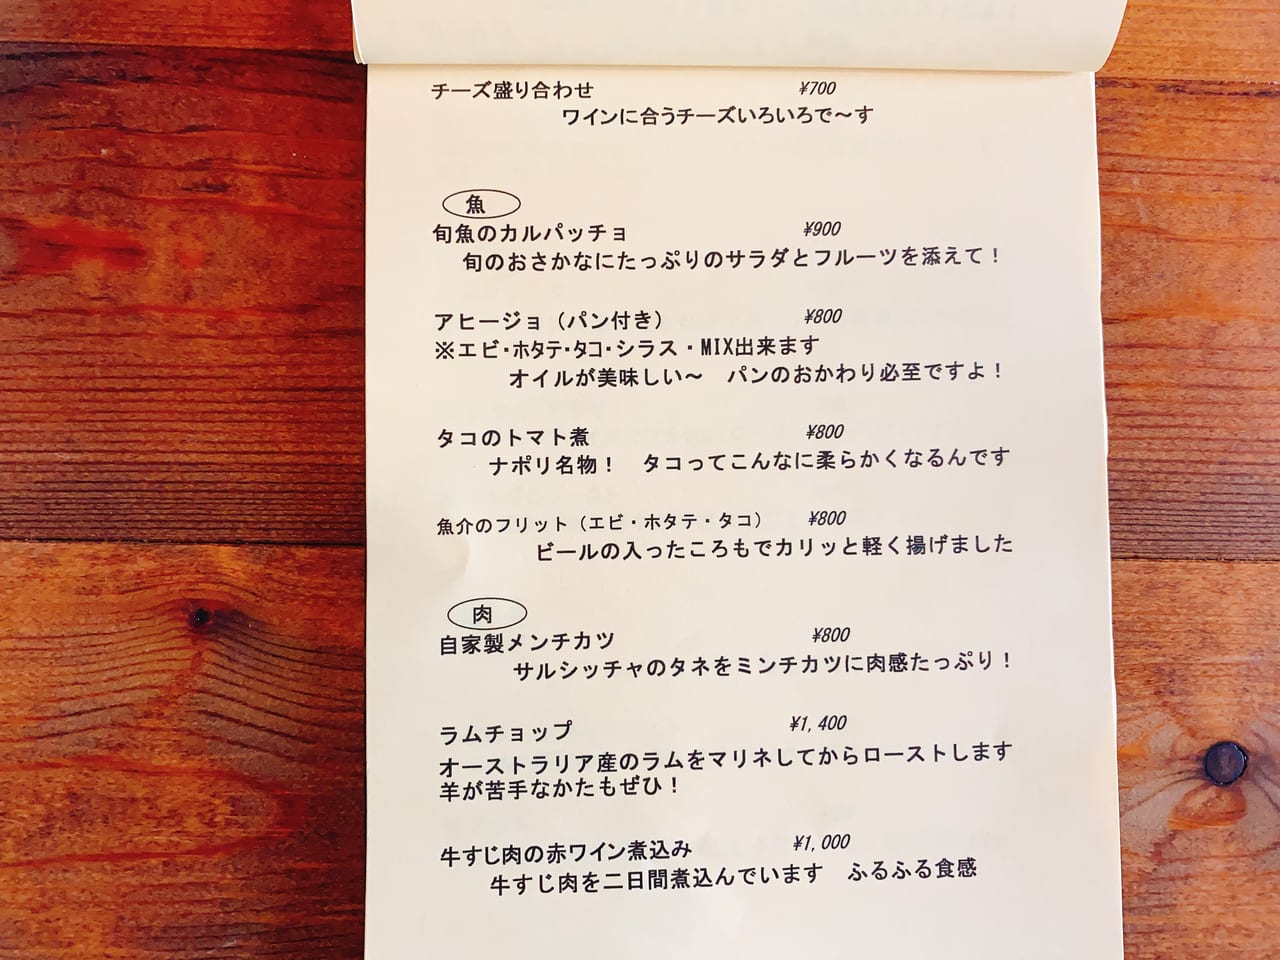 チーズ盛り合わせ ¥700
ワインに合うチーズいろいろで～す
魚
旬魚のカルパッチョ ¥900
旬のおさかなにたっぷりのサラダとフルーツを添えて！
アヒージョ（パン付き） ¥800
※エビ・ホタテ・タコ・シラス・MIX出来ます
オイルが美味しい～　パンのおかわり必至ですよ！
タコのトマト煮 ¥800
ナポリ名物！　タコってこんなに柔らかくなるんです
魚介のフリット（エビ・ホタテ・タコ） ¥800
ビールの入ったころもでカリッと軽く揚げました
肉
自家製メンチカツ ¥800
サルシッチャのタネをミンチカツに肉感たっぷり！
ラムチョップ ¥1,400
オーストラリア産のラムをマリネしてからローストします
羊が苦手なかたもぜひ！
牛すじ肉の赤ワイン煮込み ¥1,000
牛すじ肉を二日間煮込んでいます　ふるふる食感